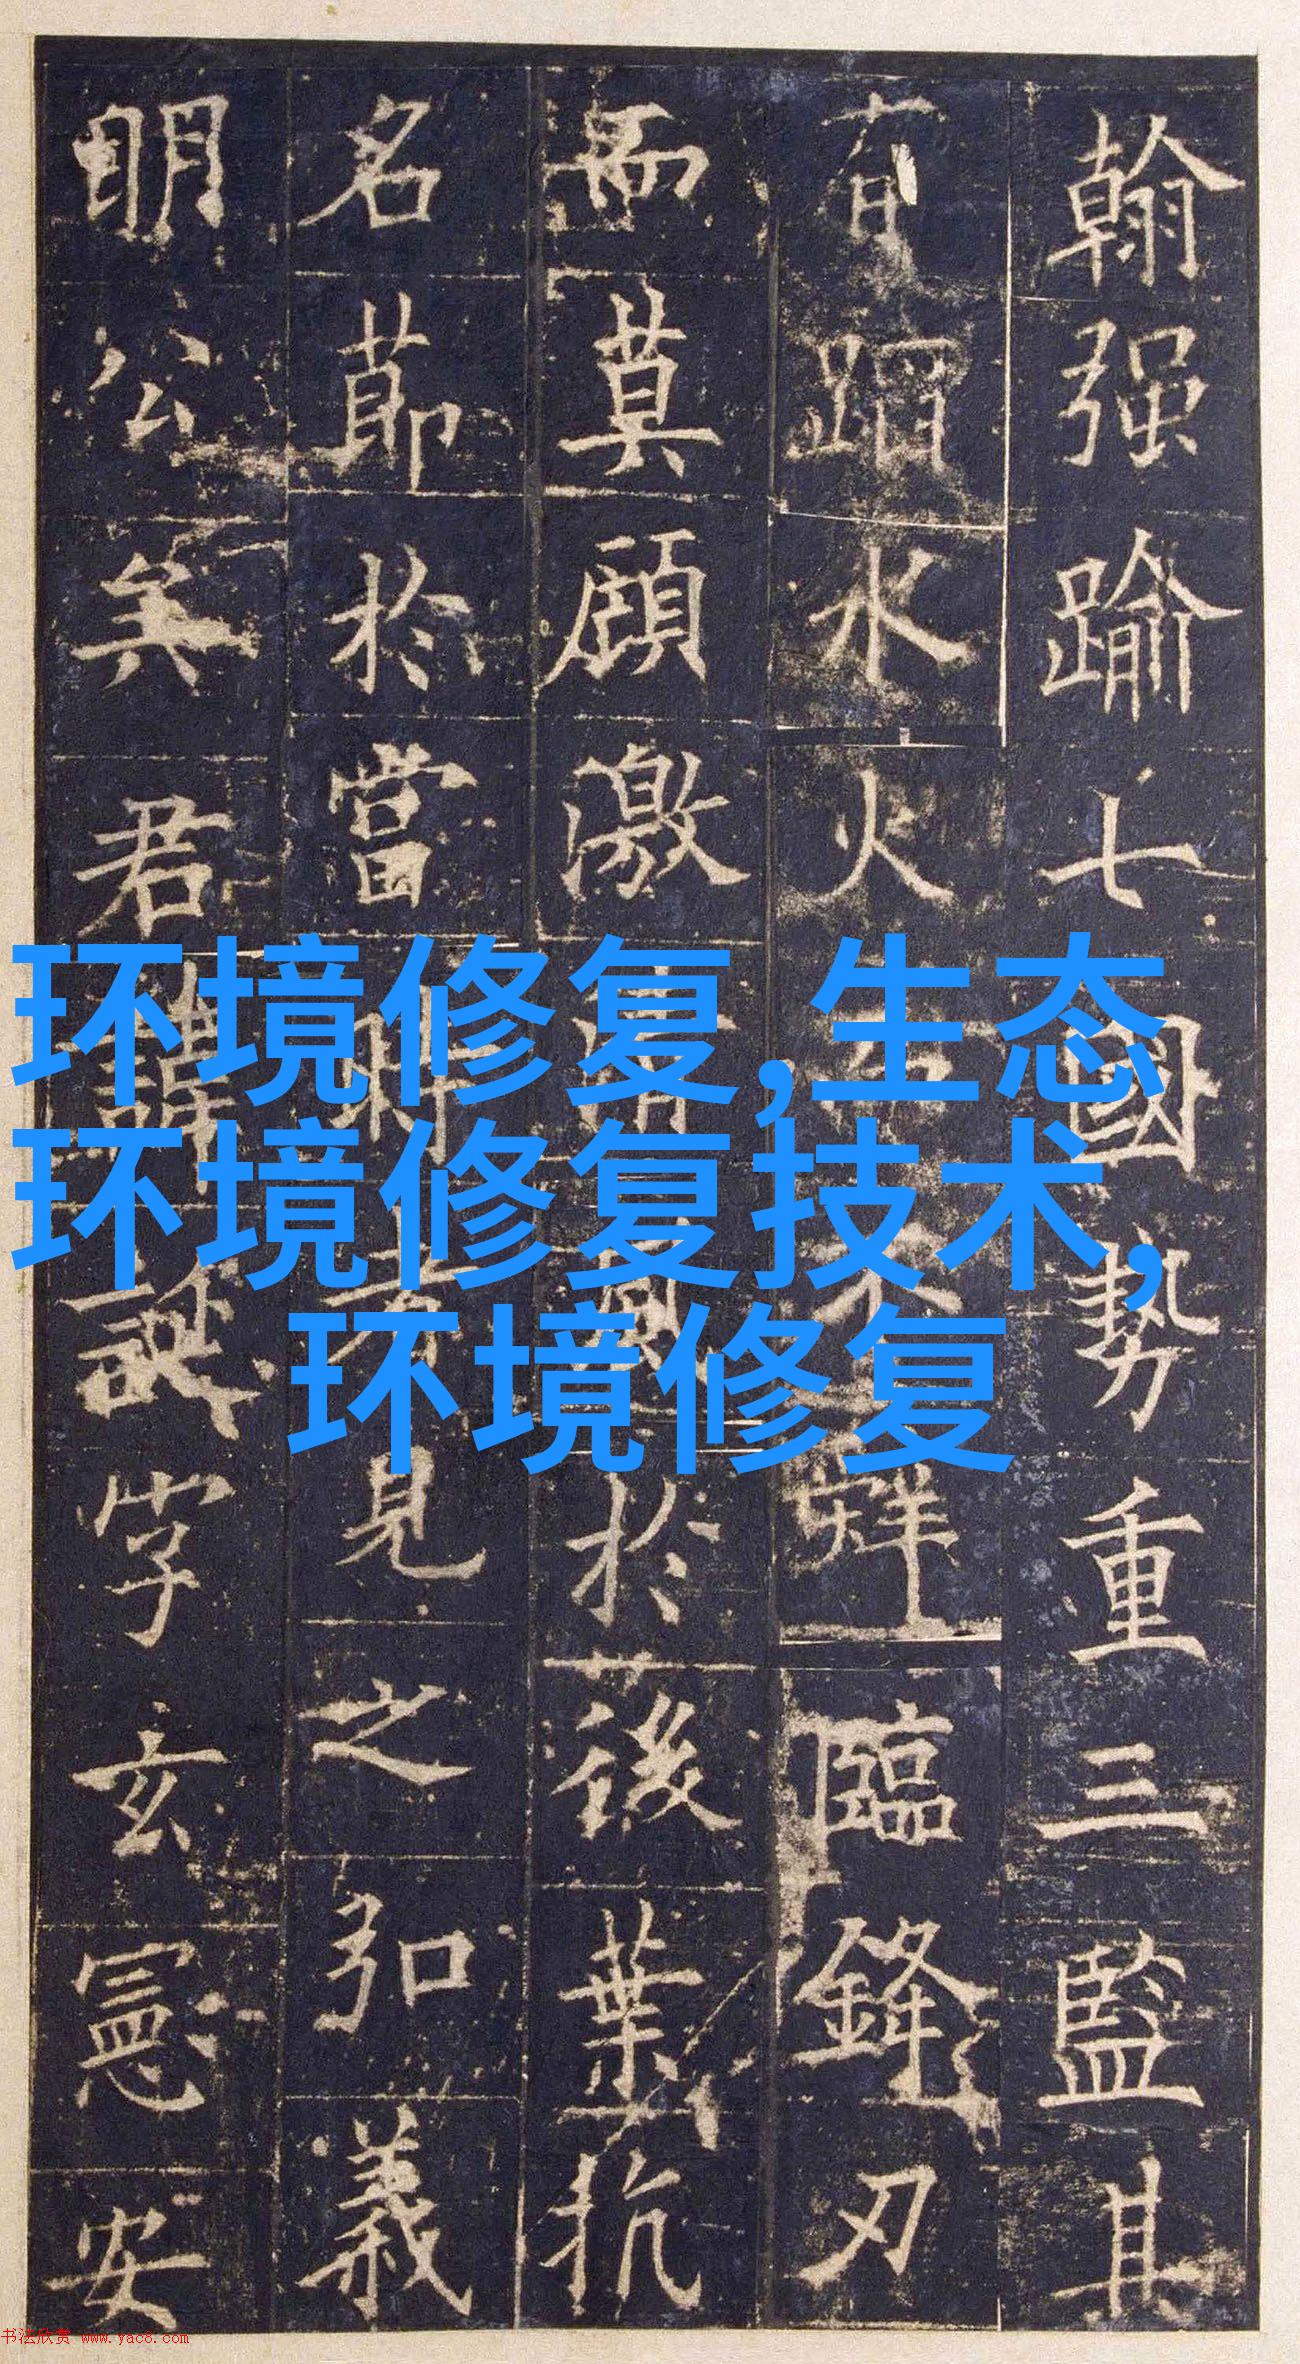 翰强踰七國勢重三監其
有蹈水火而不辤臨鋒刃
而莫顧激清風於後葉抗
名節於當時者見之弘義
明公矣君諱誕字玄憲安
环境修复,生态
环境修复技术,
环境修复
书法欣赏 www.yac8.com